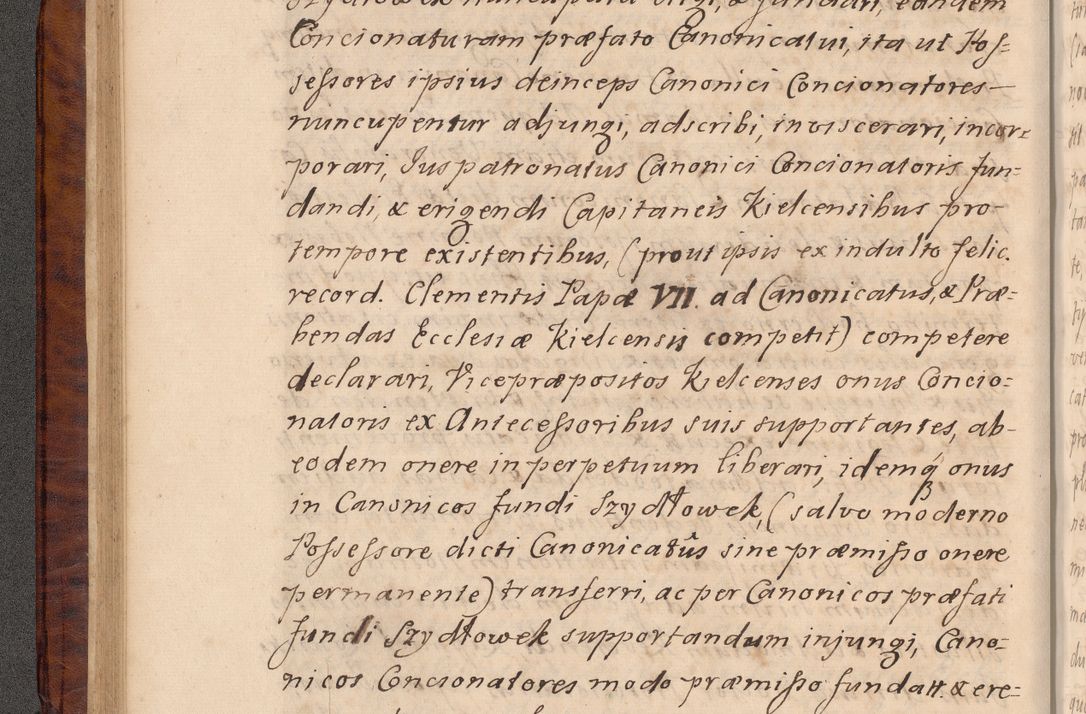 Szydłowek nuncupata erigi, & fundari, eandem
Concionaturam præfato Canonicatui, ita ut Pos=
sessores ipsius deinceps Canonici Concionatores
nuncupentur adjungi, adscribi, inviscerari, incor=
porari, Juspatronatus Canonici Concionatoris fun=
dandi, & erigendi Capitaneis Kielcensibus pro
tempore existentibus, (prout ipsis ex indulto felic.
record. Clementis Papæ VII. ad Canonicatus, & Præ=
bendas Ecclesiæ Kielcensis competit) competere
declarari, Vicepræpositos Kielcenses onus Concio=
natoris ex Antecessoribus suis supportantes, ab
eodem onere in perpetuum liberari, idemq3 onus
in Canonicos fundi Szydłowek, (salvo moderno
Possessore dicti Canonicatûs sine præmisso onere
permanente) transferri, ac per Canonicos præfati
fundi Szydłowek supportandum injungi, Cano=
nicos Concionatores modo præmisso fundatt. & ere=